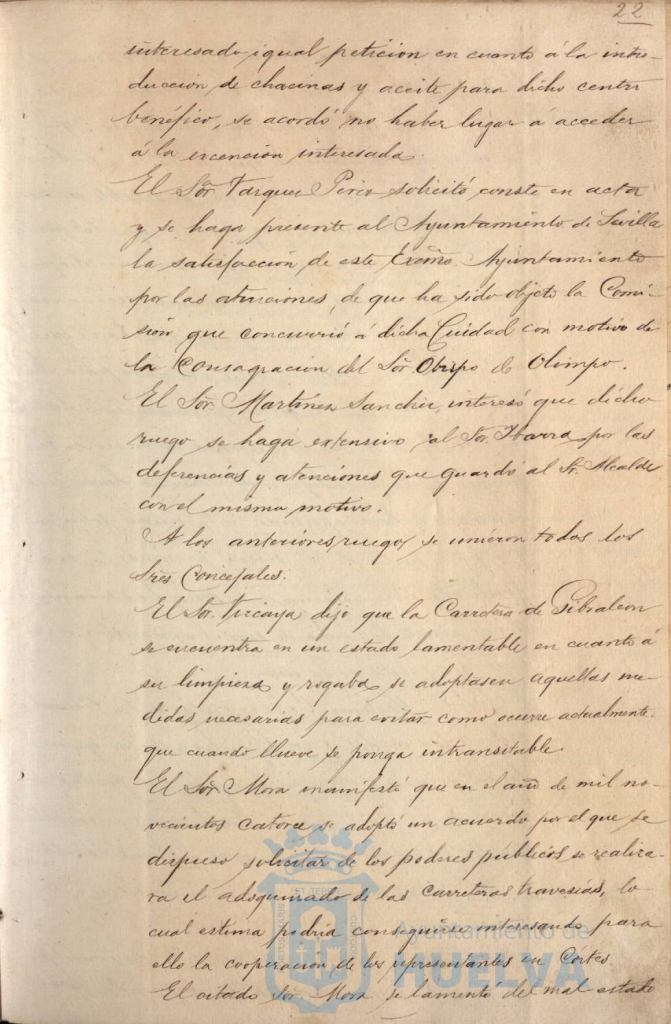 22
interesado igual peticion en cuanto á la intro-
duccion de chacinas y aceite para dicho centro
benéfico, se acordó no haber lugar á acceder
á la excencion interesada.
El Sor. Vazquez Perez solicitó conste en acta
y se haga presente al Ayuntamiento de Sevilla
la satisfacción de este Excmo Ayuntamiento
por las atenciones, de que ha sido objeto la Comi-
sión que concurrió á dicha Ciudad con motivo de
la Consagracion del Sor Obispo de Olimpo.
El Sor. Martinez Sanchez, interesó que dicho
ruego se haga extensivo al Sr. Ibarra por las
deferencias y atenciones que guardó al Sr. Alcalde
con el mismo motivo.
A los anteriores ruegos se unieron todos los
Sres Concejales.
El Sr. Vizcaya dijo que la Carretera de Gibraleon
se encuentra en un estado lamentable en cuanto á
su limpieza y rogaba se adoptasen aquellas me-
didas necesarias para evitar como ocurre actualmente
que cuando llueve se ponga intransitable.
El Sor. Mora manifestó que en el año de mil no-
vecientos catorce se adoptó un acuerdo por el que se
dispuso solicitar de los poderes públicos se realiza-
ra el adoquinado de las carreteras travesías, lo
cual estima podria conseguirse interesando para
ello la cooperacion de los representantes en Córtes.
El citado Sor. Mora se lamentó del mal estado
Ayuntamiento de
HUELVA